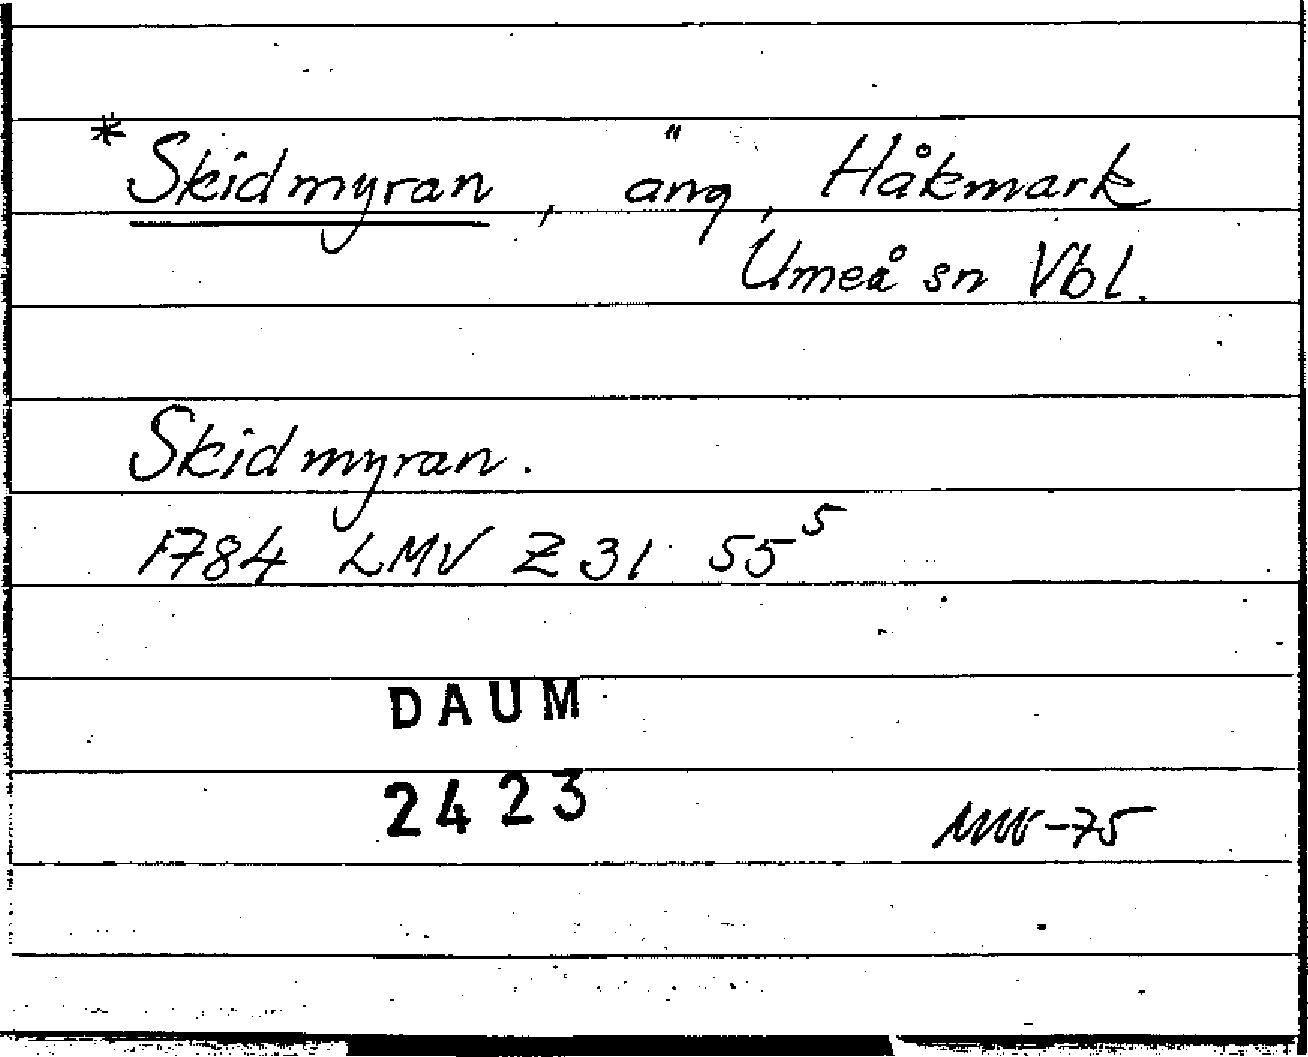 * Skidmyran, äng, Håkmark
Umeå sn Vbl.
Skidmyran.
1784 LMV Z 31 55⁵
DAUM
2423
-75